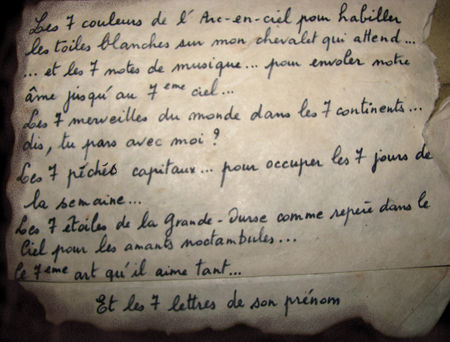 Les 7 couleurs de l'Arc-en-ciel pour habiller
les toiles blanches sur mon chevalet qui attend...
... et les 7 notes de musique... pour envoler notre
âme jusqu'au 7eme ciel...
Les 7 merveilles du monde dans les 7 continents...
dis, tu pars avec moi ?
Les 7 péchés capitaux... pour occuper les 7 jours de
la semaine...
Les 7 étoiles de la Grande-Ourse comme repère dans le
Ciel pour les amants noctambules...
Le 7eme art qu'il aime tant...
Et les 7 lettres de son prénom